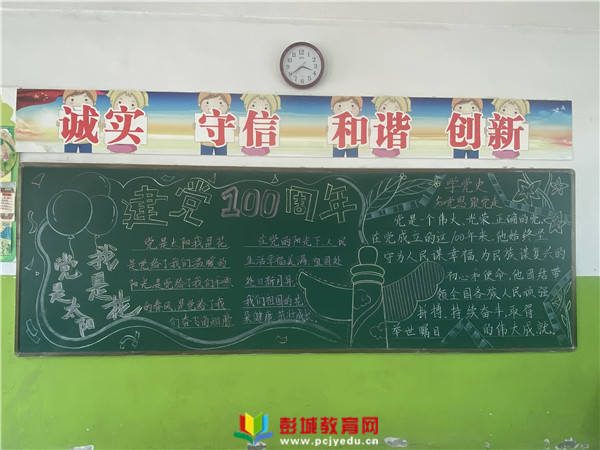 诚实 守信 和谐 创新
建党100周年
党是太阳
我是花
党是太阳我是花
是党给了我们温暖的
阳光是党给了我们和煦
的春风是党给了我
们奋飞的翅膀
在党的阳光下人民
生活幸福美满,祖国处
处日新月异,
我们祖国的花
朵健康茁壮成长。
学党史
知党恩 跟党走
党是一个伟大、光荣、正确的党,
在党成立的这100年来,他始终坚
守为人民谋幸福,为民族谋复兴的
初心和使命,他团结带
领全国各族人民顽强
拼搏,持续奋斗,取得
举世瞩目的伟大成就。
彭城教育网
www.pcjyedu.cn